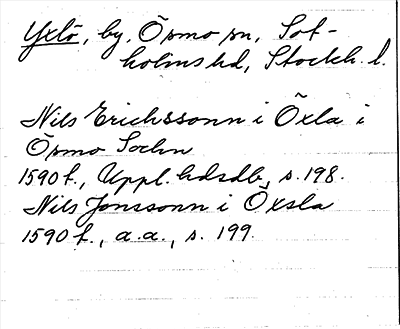 Yxlö, by, Ösmo sn, Sot-
holms hd, Stockh. l.
Nils Erichssonn i Öxla i
Ösmo Sochn
1590 f., Uppl. hdsdb, s. 198.
Nils Jönssonn i Öxsla
1590 f., a.a., s. 199.